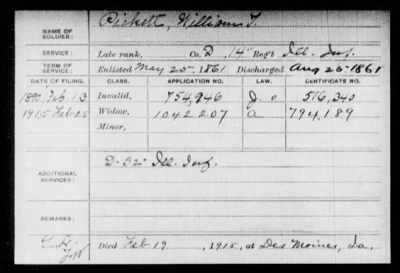 NAME OF SOLDIER: Pickett, William T.
SERVICE: Late rank, Co. D, 14" Reg't Ill. Inf.
TERM OF SERVICE: Enlisted May 25, 1861 Discharged Aug 25-1861
DATE OF FILING. CLASS. APPLICATION NO. LAW. CERTIFICATE NO.
Feb 13 Invalid, 754,946 J. o. 516,340
1915 Feb-25 Widow, 1042207 a 794,189
Minor,
ADDITIONAL SERVICES: D-32" Ill. Inf.
REMARKS:
Died Feb 19, 1915, at Des Moines, Ia.